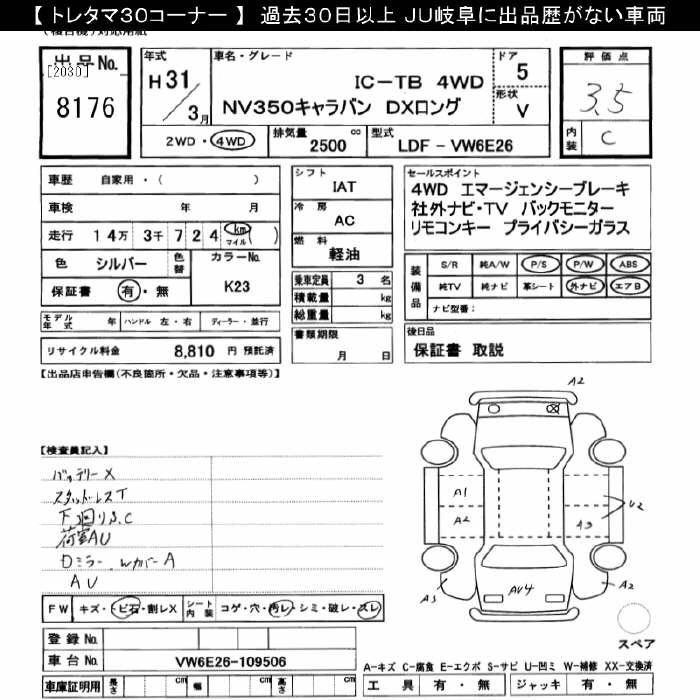 【 トレタマ30コーナー 】 過去30日以上 JU岐阜に出品歴がない車両
出品No.
[2030]
8176
年式
H31
3月
車名・グレード
IC-TB 4WD
NV350キャラバン DXロング
ドア
5
形状
V
2WD・4WD
排気量
2500 cc
型式
LDF - VW6E26
評価点
3.5
内装
C
車歴 自家用・( )
車検 年 月
走行 14万 3千 7 2 4 km マイル ( )
色 シルバー
色替
カラーNo.
K23
保証書 有・無
モデル年式 年 ハンドル 左・右 ディーラー・並行
リサイクル料金 8,810 円 預託済
シフト
IAT
冷房
AC
燃料
軽油
乗車定員 3 名
積載量 kg
総重量 kg
書類期限
月 日
セールスポイント
4WD エマージェンシーブレーキ
社外ナビ・TV バックモニター
リモコンキー プライバシーガラス
装備品
S/R 純A/W P/S P/W ABS
純TV 純ナビ 革シート 外ナビ エアB
ナビ型番:
後日品
保証書 取説
【出品店申告欄(不良箇所・欠品・注意事項等)】
【検査員記入】
バッテリーX
スタッドレスT
下廻りS.C
荷室AU
Dミラー.WカバーA
AU
FW キズ・トビ石・割レX
シート内装 コゲ・穴・汚レ・シミ・破レ・スレ
登録No.
車台No. VW6E26-109506
車庫証明用 長さ cm 幅 cm 高さ cm
A2
A1
A2
U2
A3
A3
AU4
A2
スペア
A-キズ C-腐食 E-エクボ S-サビ U-凹ミ W-補修 XX-交換済
工具 有・無 ジャッキ 有・無